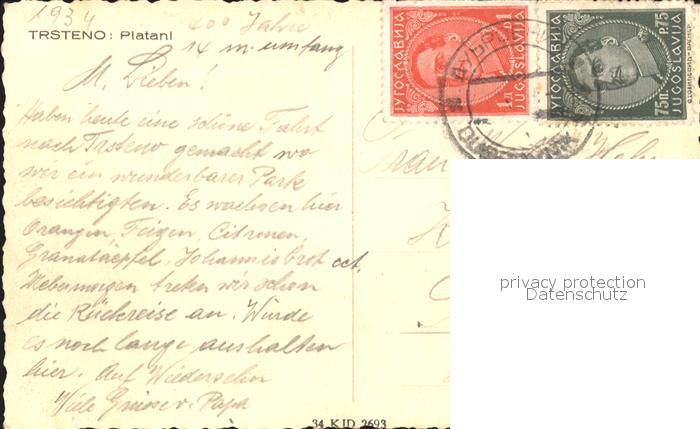 1934
400 Jahre
TRSTENO: Platani
14 m. umfang
M. Lieben!
Haben heute eine schöne Fahrt
nach Trsteno gemacht wo
wir ein wunderbarer Park
besichtigten. Es wachsen hier
Orangen, Feigen, Citronen,
Granatäepfel, Johannisbrot ect.
treten wir schon
die Rückreise an. Würde
es noch lange aushalten
hier. Auf Wiedersehn
Viele Grüsse v. Papa
34 KJD 2693
ЈУГОСЛАВИЈА
JUGOSLAVIJA
1
ЈУГОСЛАВИЈА
P.75
75п.
JUGOSLAVIJA
privacy protection
Datenschutz